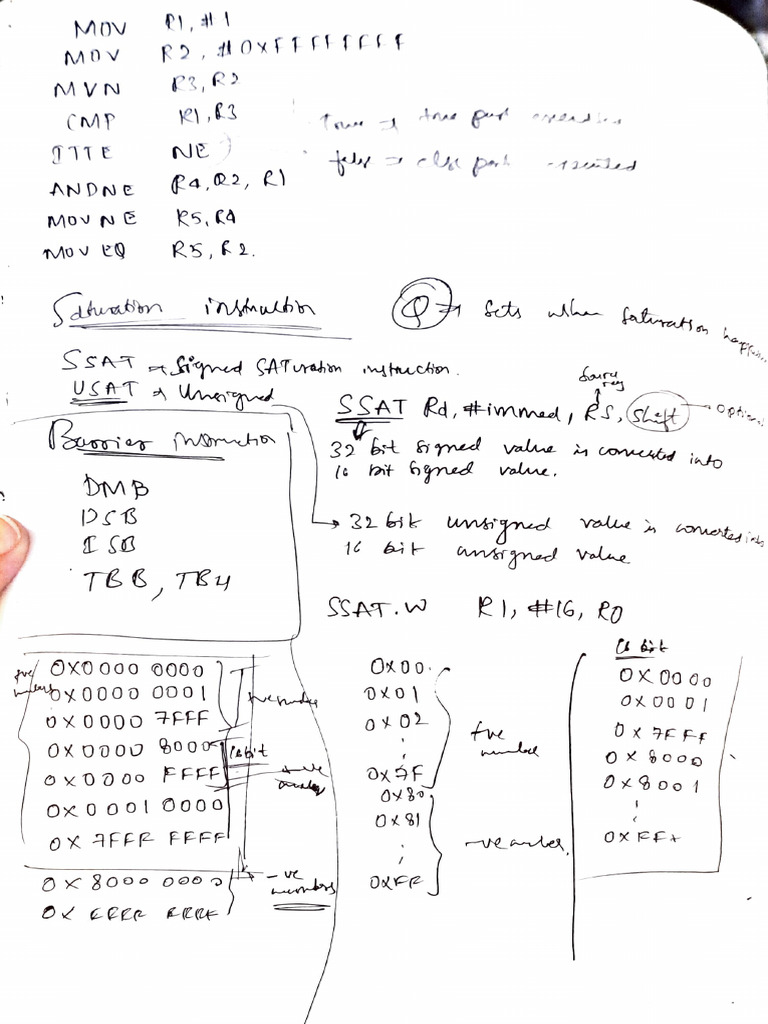 MOV R1, #1
MOV R2, #0XFFFFFFFF
MVN R3, R2
CMP R1, R3
true → true part
ITTE NE
false → else part executed
ANDNE R4, R2, R1
MOVNE R5, R4
MOVEQ R5, R2.
Saturation instruction
Q → sets when saturation
SSAT → Signed SATuration instruction.
USAT → Unsigned
SSAT Rd, #immed, RS, shift
32 bit signed value is converted into
16 bit signed value.
32 bit unsigned value is converted into
16 bit unsigned value
Barrier instruction
DMB
DSB
ISB
TBB, TBH
SSAT.W R1, #16, R0
+ve numbers
0X0000 0000
0X0000 0001
0X0000 7FFF
0X0000 8000
0X0000 FFFF
0X0001 0000
0X 7FFF FFFF
+ve number
16 bit
0X 8000 0000
0X FFFF FFFF
-ve numbers
0X00
0X01
0X02
0X7F
+ve number
0X80
0X81
0XFF
-ve number.
16 bit
0X0000
0X0001
0X7FFF
0X8000
0X8001